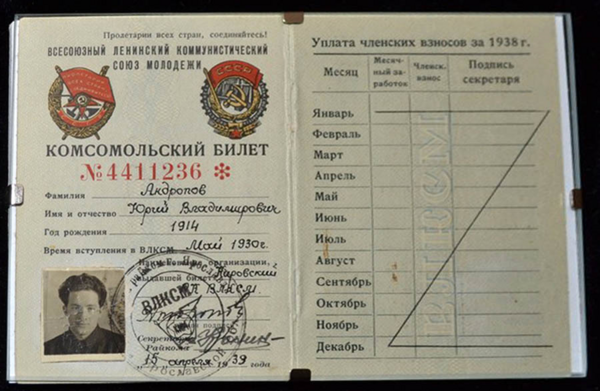 Пролетарии всех стран, соединяйтесь!
ВСЕСОЮЗНЫЙ ЛЕНИНСКИЙ КОММУНИСТИЧЕСКИЙ
СОЮЗ МОЛОДЕЖИ
СССР
КОМСОМОЛЬСКИЙ БИЛЕТ
№ 4411236 *
Фамилия Андропов
Имя и отчество Юрий Владимирович
Год рождения 1914
Время вступления в ВЛКСМ Май 1930 г.
Наименование организации,
выдавшей билет Кировский
РК ВЛКСМ
ВЛКСМ
Секретарь
Райкома
15 апреля 1939 года
Уплата членских взносов за 1938 г.
Месяц
Месячный заработок
Членск. взнос
Подпись секретаря
Январь
Февраль
Март
Апрель
Май
Июнь
Июль
Август
Сентябрь
Октябрь
Ноябрь
Декабрь